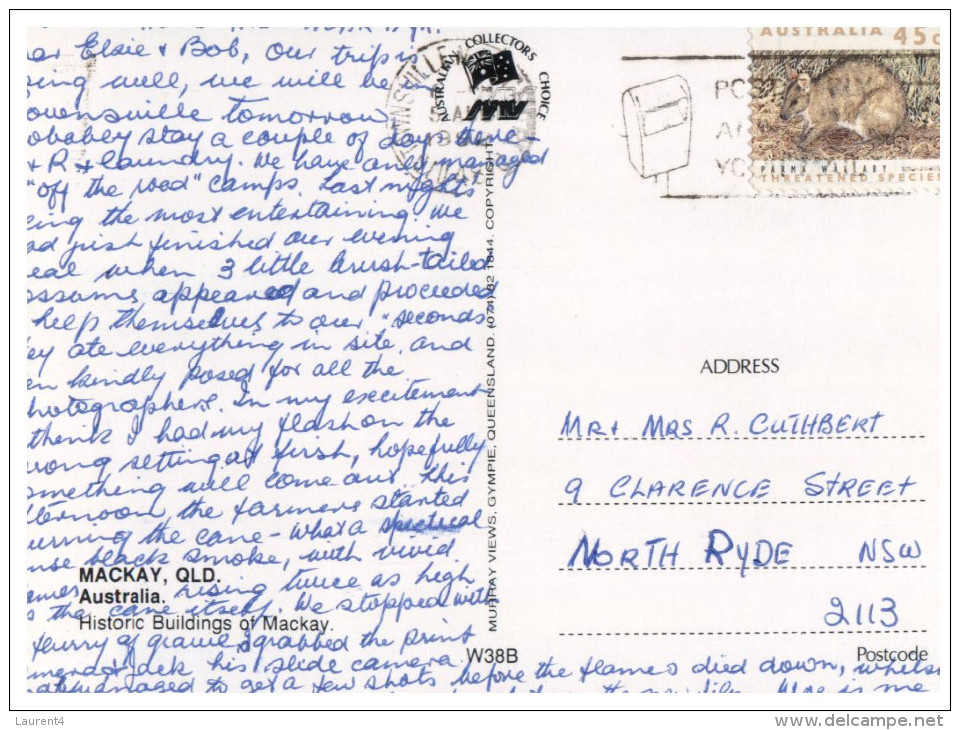 ar Elsie & Bob, Our trip is
ing well, we will be in
ownsville tomorrow
obabey stay a couple of days there -
+ R + laundry. We have only managed
"off the road" camps. Last night
eing the most entertaining, we
ad just finished our evening
eal when 3 little brush-tailed
ossums appeared and proceeded
help themselves to our "seconds
ey ate everything in site, and
en kindly posed for all the
hotographers. In my excitement
think I had my flash on the
rong setting at first, hopefully
omething will come out. This
fternoon, the farmers started
urning the cane - what a
nse black smoke, with vivid
ames rising twice as high
s the cane itself. We stopped with
flurry of gravel, I grabbed the print
mera & Jack his slide camera.
managed to get a few shots before the flames died down, whils
is me
MACKAY, QLD.
Australia.
Historic Buildings of Mackay.
W38B
AUSTRALIAN COLLECTORS CHOICE
MV
MURRAY VIEWS, GYMPIE, QUEENSLAND. (074) 82 1844. COPYRIGHT
AUSTRALIA 45c
PARMA WALLABY
THREATENED SPECIES
ADDRESS
MR & MRS R. CUTHBERT
9 CLARENCE STREET
NORTH RYDE NSW
2113
Postcode
Laurent4
www.delcampe.net